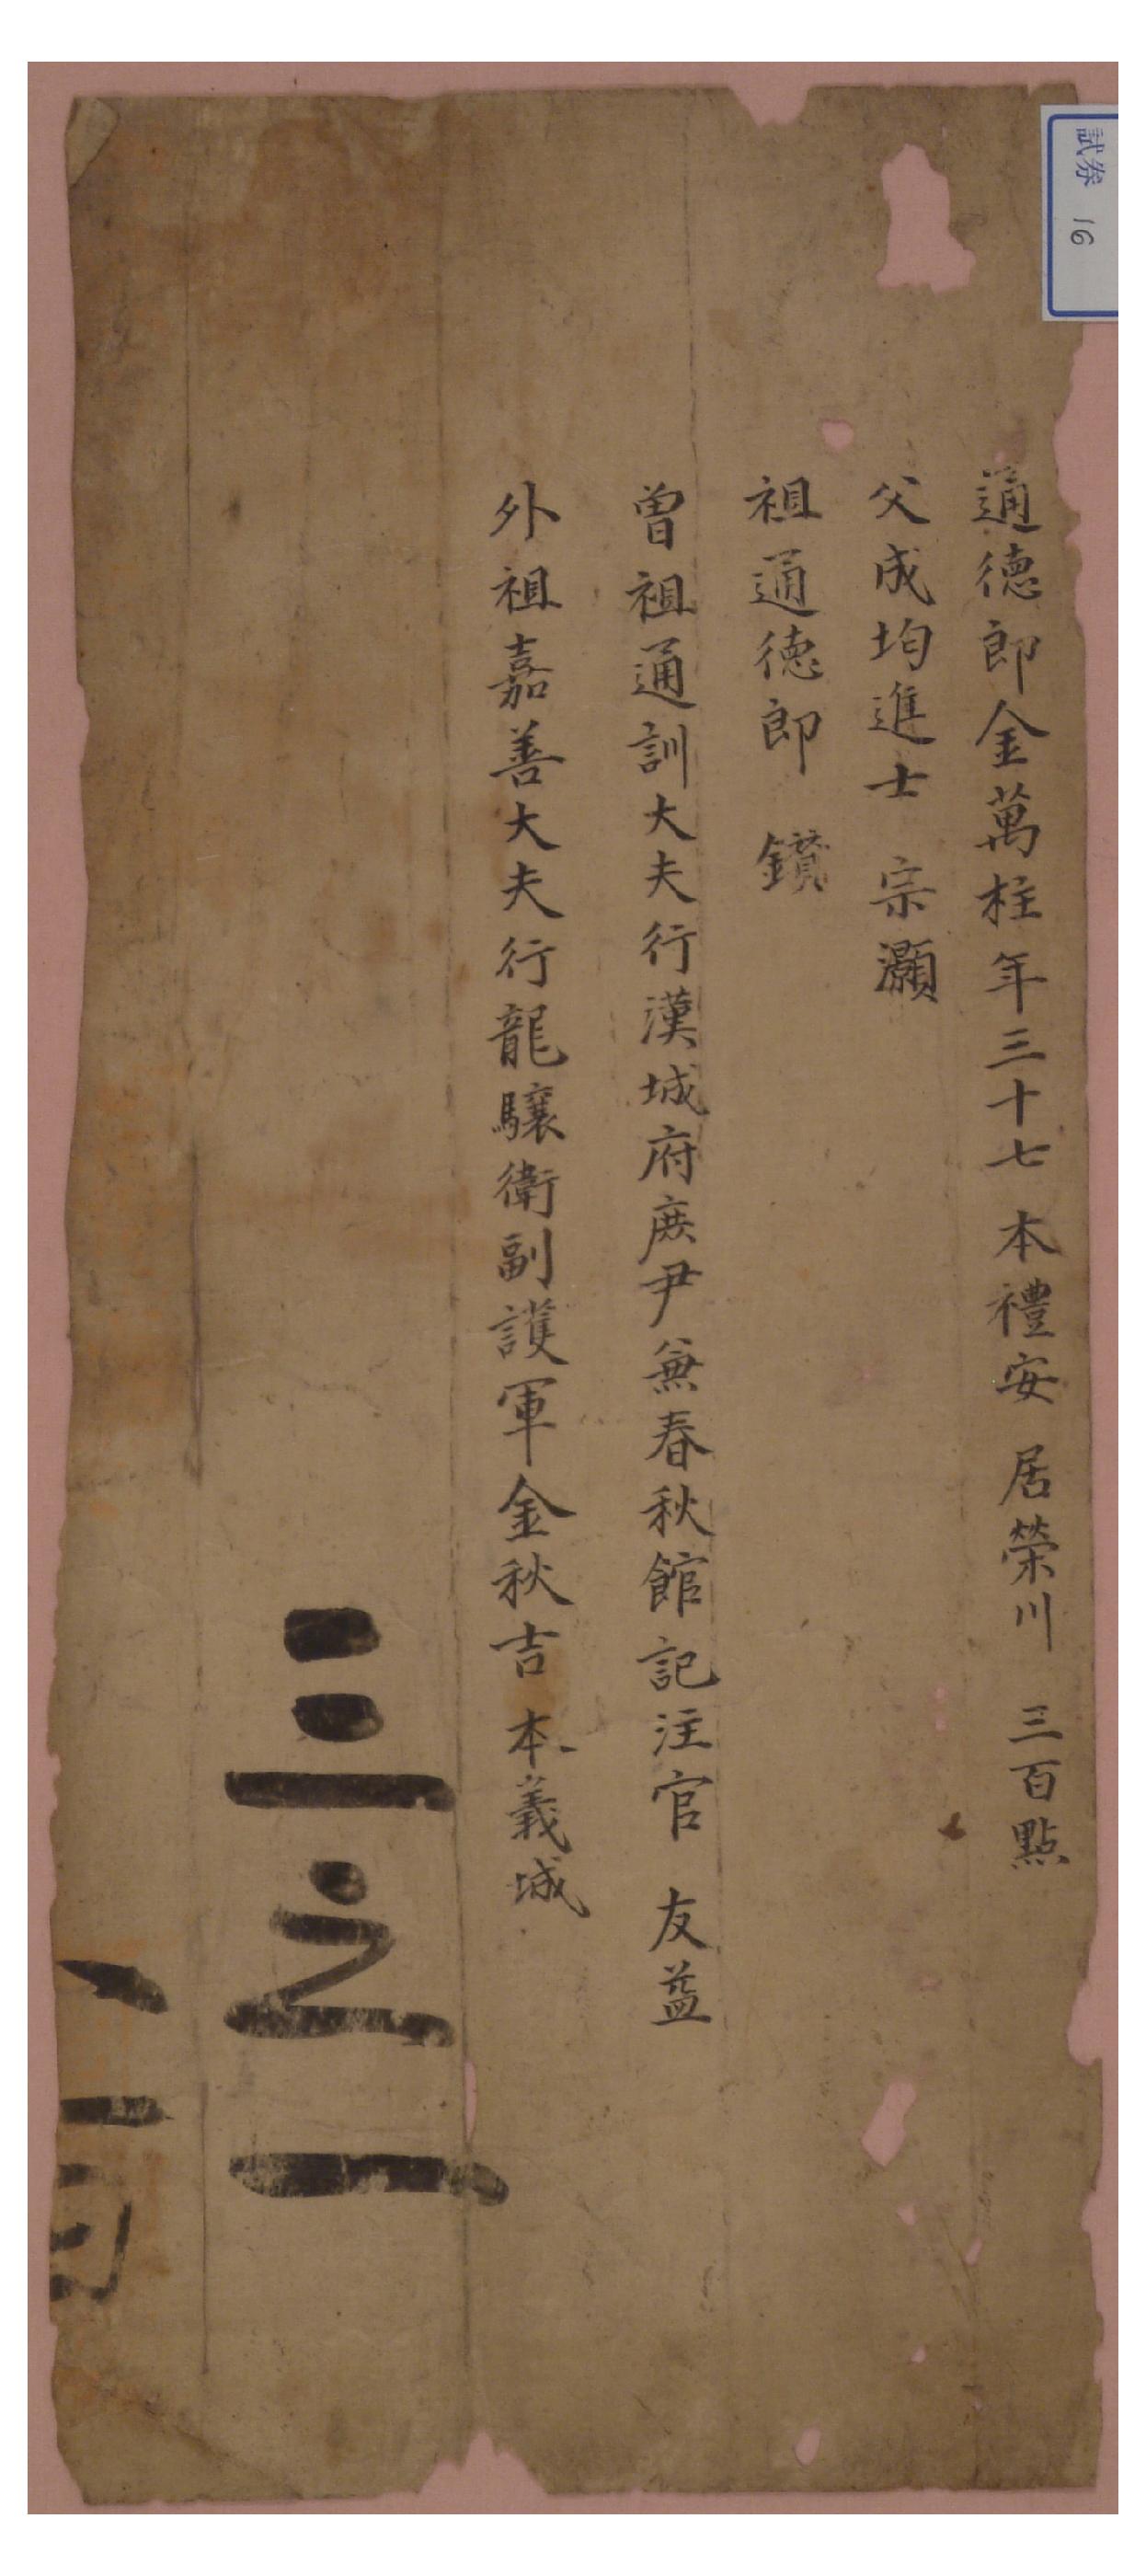 試券 16
通德郎金萬柱年三十七 本禮安 居榮川 三百點
父成均進士 宗灝
祖通德郎 鑽
曾祖通訓大夫行漢城府庶尹兼春秋館記注官 友益
外祖嘉善大夫行龍驤衛副護軍金秋吉 本義城
二三之一